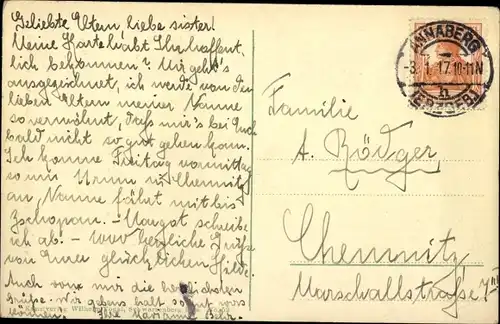 Geliebte Eltern, liebe sister!
Meine Karte habt Ihr hoffent-
lich bekommen? Mir geht's
ausgezeichnet, ich werde von den
lieben Eltern meiner Nanne
so verwöhnt, daß mir's bei Euch
bald nicht so gut gehen kann.
Ich komme Freitag vormittag
so um Uhr in Chemnitz
an, Nanne fährt mit bis
Zschopau. – Margot schreibe
ich ab. – 1000 herzliche Grüße
von Eurer glücklichen Hilde.
Auch von mir die herzlichsten
Grüße. Wir gehens halt
können. Ihre Marianne
ANNABERG
-3.1.17.10-11N
h
(ERZGEB.)
Familie
A. Rödger,
Chemnitz,
Marschallstraße